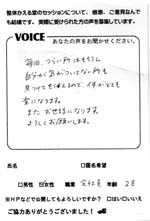 整体かえる堂のセッションについて、感想、ご意見なんで
も結構です。実際に受けられた方の声を募集しています。
VOICE
あなたの声をお聞かせください。
毎回、つらい所はもちろん
自分が気がついてない所も
見つけてもらえるので、体がとても
楽になります。
また お世話になります。
よろしくお願いします。
氏名 □匿名希望
□男性 ☑女性 職業 会社員 年齢 28
※HPなどで公開しても よろしいですか？ □はい □いいえ
ご協力ありがとうございました！